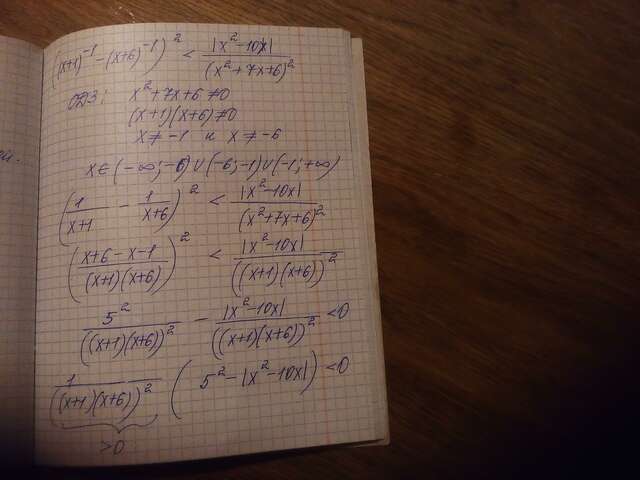 ((x+1)⁻¹ - (x+6)⁻¹)² < |x² - 10x| / (x² + 7x + 6)²
ОДЗ: x² + 7x + 6 ≠ 0
(x+1)(x+6) ≠ 0
x ≠ -1 и x ≠ -6
x ∈ (-∞; -6) ∪ (-6; -1) ∪ (-1; +∞)
(1/(x+1) - 1/(x+6))² < |x² - 10x| / (x² + 7x + 6)²
((x+6-x-1) / ((x+1)(x+6)))² < |x² - 10x| / ((x+1)(x+6))²
5² / ((x+1)(x+6))² - |x² - 10x| / ((x+1)(x+6))² < 0
1 / ((x+1)(x+6))² (5² - |x² - 10x|) < 0
>0